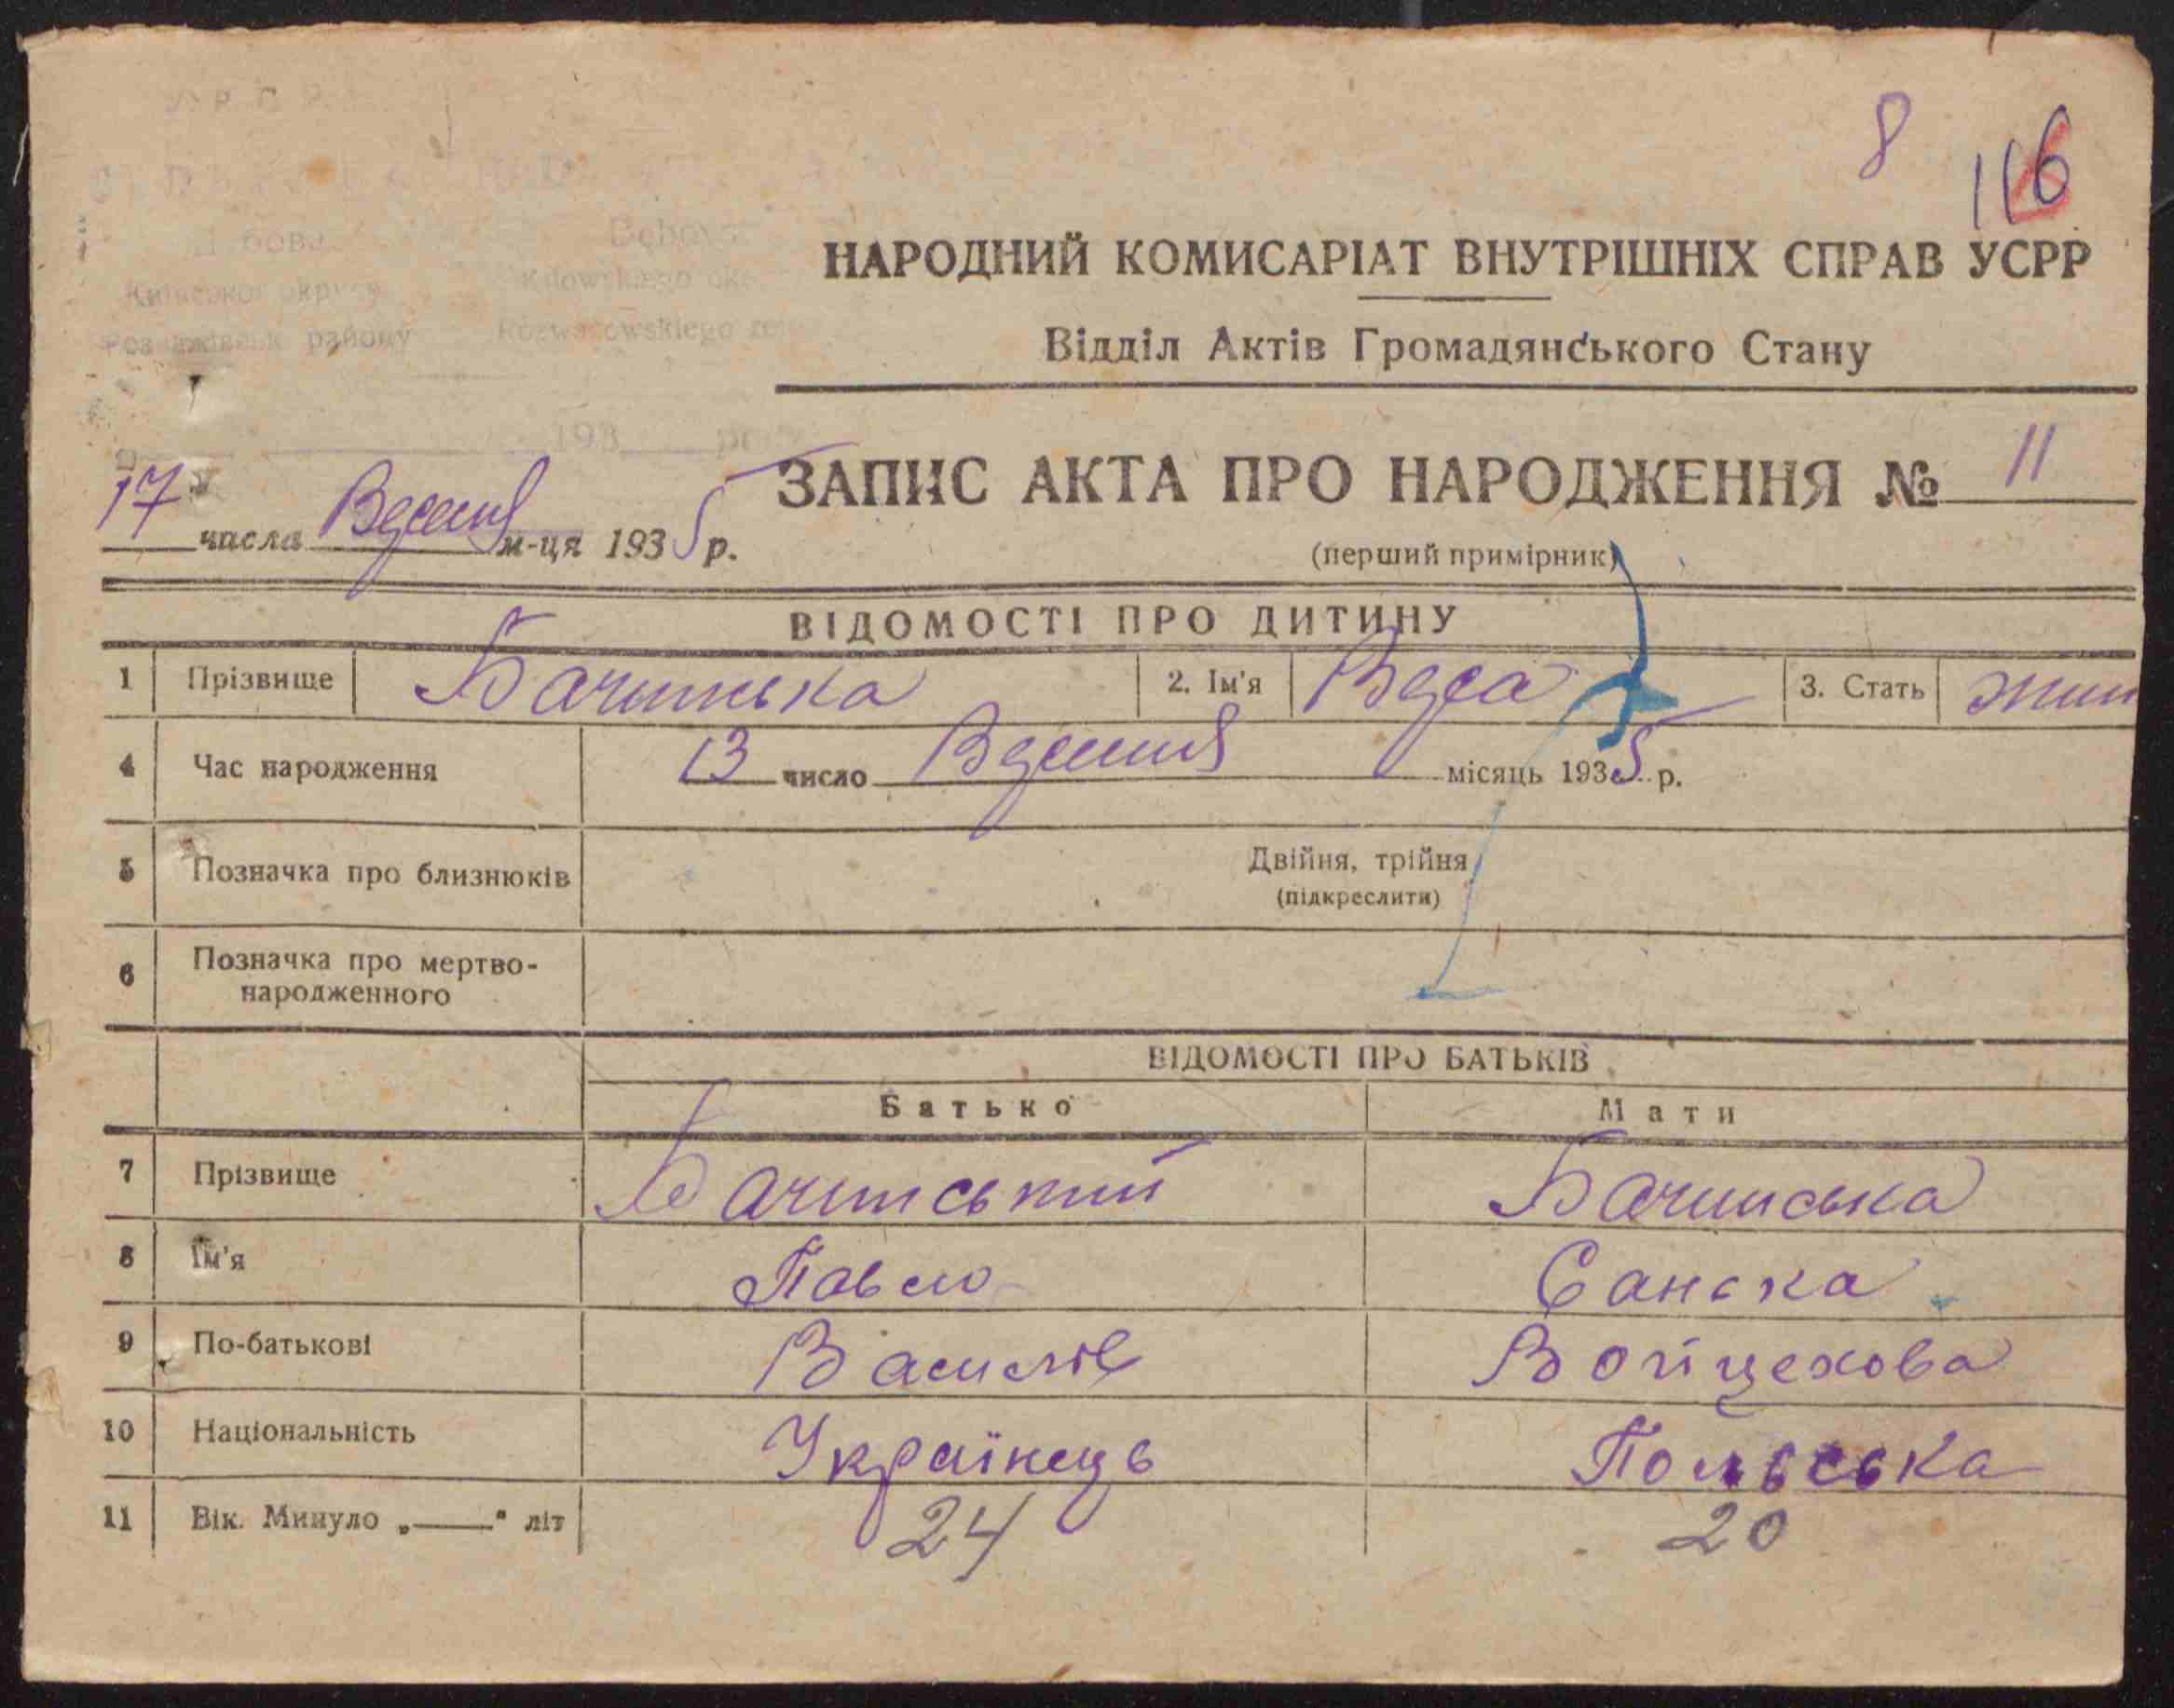 8
116
НАРОДНИЙ КОМИСАРІАТ ВНУТРІШНІХ СПРАВ УСРР
Відділ Актів Громадянського Стану
району
193
ЗАПИС АКТА ПРО НАРОДЖЕННЯ № 11
17 числа Вересня м-ця 1935 р.
(перший примірник)
ВІДОМОСТІ ПРО ДИТИНУ
1 Прізвище Бачинська 2. Ім'я 3. Стать жин
4 Час народження 13 число Вересня місяць 1935 р.
5 Позначка про близнюків Двійня, трійня
(підкреслити)
6 Позначка про мертво-
народженного
ВІДОМОСТІ ПРО БАТЬКІВ
Батько Мати
7 Прізвище Бачинський Бачинська
8 Ім'я Павло
9 По-батькові Василів Войцехова
10 Національність Українець Польська
11 Вік. Минуло „——" літ 24 20